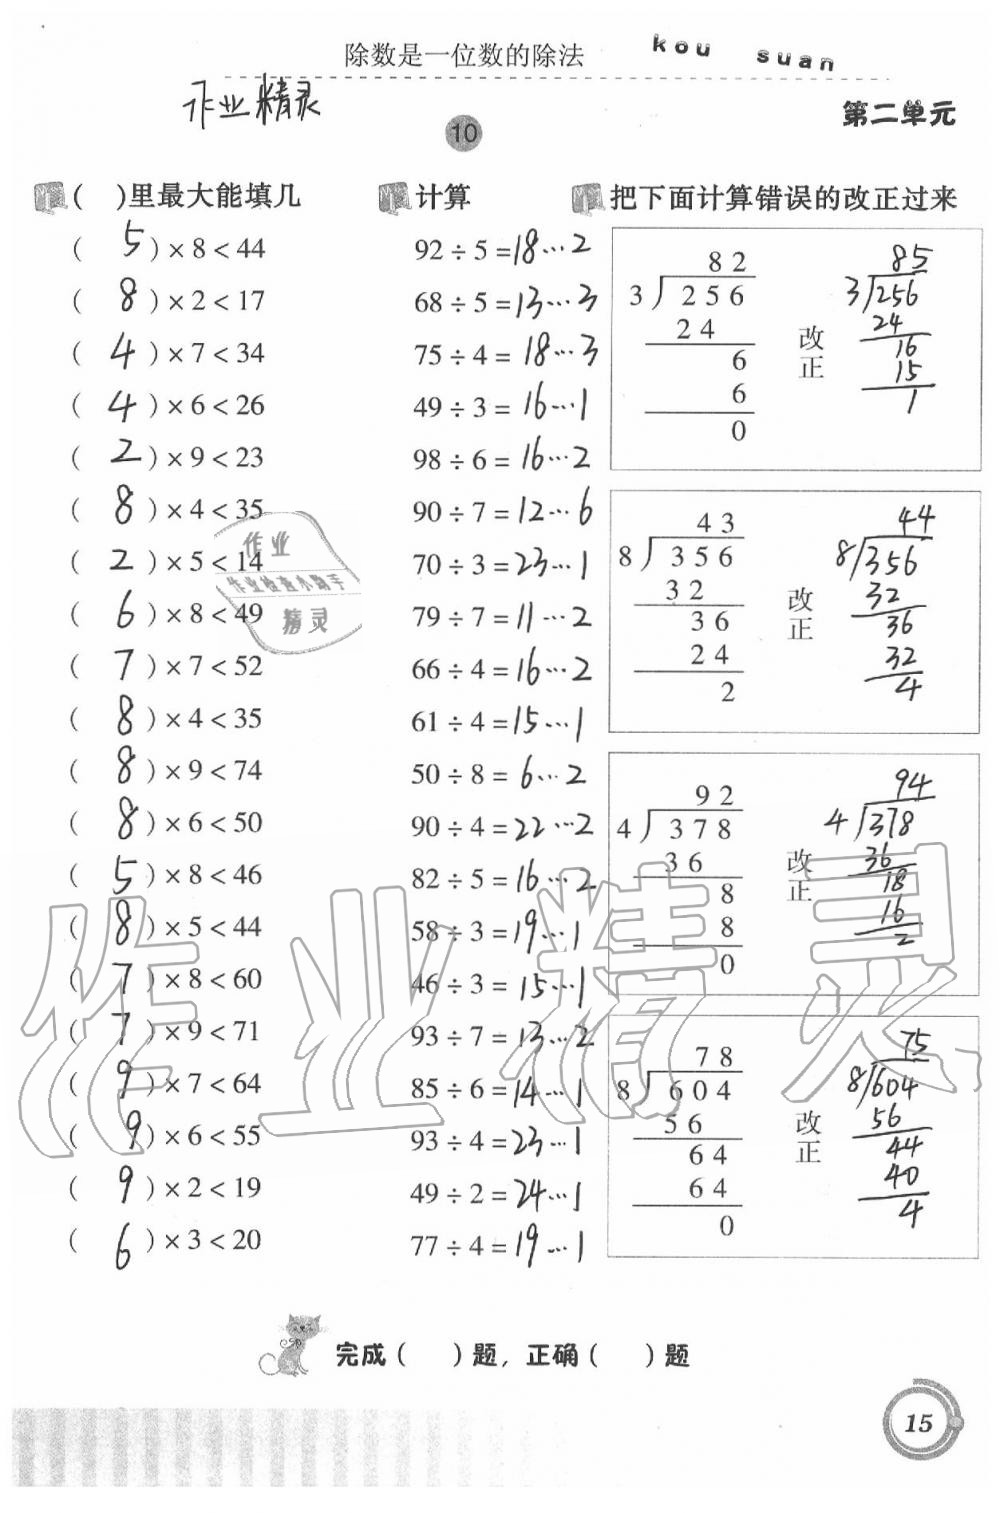 除数是一位数的除法 kou suan
作业精灵
第二单元
10
( )里最大能填几
( 5 )×8<44
( 8 )×2<17
( 4 )×7<34
( 4 )×6<26
( 2 )×9<23
( 8 )×4<35
( 2 )×5<14
( 6 )×8<49
( 7 )×7<52
( 8 )×4<35
( 8 )×9<74
( 8 )×6<50
( 5 )×8<46
( 8 )×5<44
( 7 )×8<60
( 7 )×9<71
( 9 )×7<64
( 9 )×6<55
( 9 )×2<19
( 6 )×3<20
计算
92÷5=18…2
68÷5=13…3
75÷4=18…3
49÷3=16…1
98÷6=16…2
90÷7=12…6
70÷3=23…1
79÷7=11…2
66÷4=16…2
61÷4=15…1
50÷8=6…2
90÷4=22…2
82÷5=16…2
58÷3=19…1
46÷3=15…1
93÷7=13…2
85÷6=14…1
93÷4=23…1
49÷2=24…1
77÷4=19…1
把下面计算错误的改正过来
82
3)256
24
6
6
0
改正
85
3)256
24
16
15
1
43
8)356
32
36
24
2
改正
44
8)356
32
36
32
4
92
4)378
36
8
8
0
改正
94
4)378
36
18
16
2
78
8)604
56
64
64
0
改正
75
8)604
56
44
40
4
作业
作业检查小助手
精灵
作业精灵
完成( )题，正确( )题
15